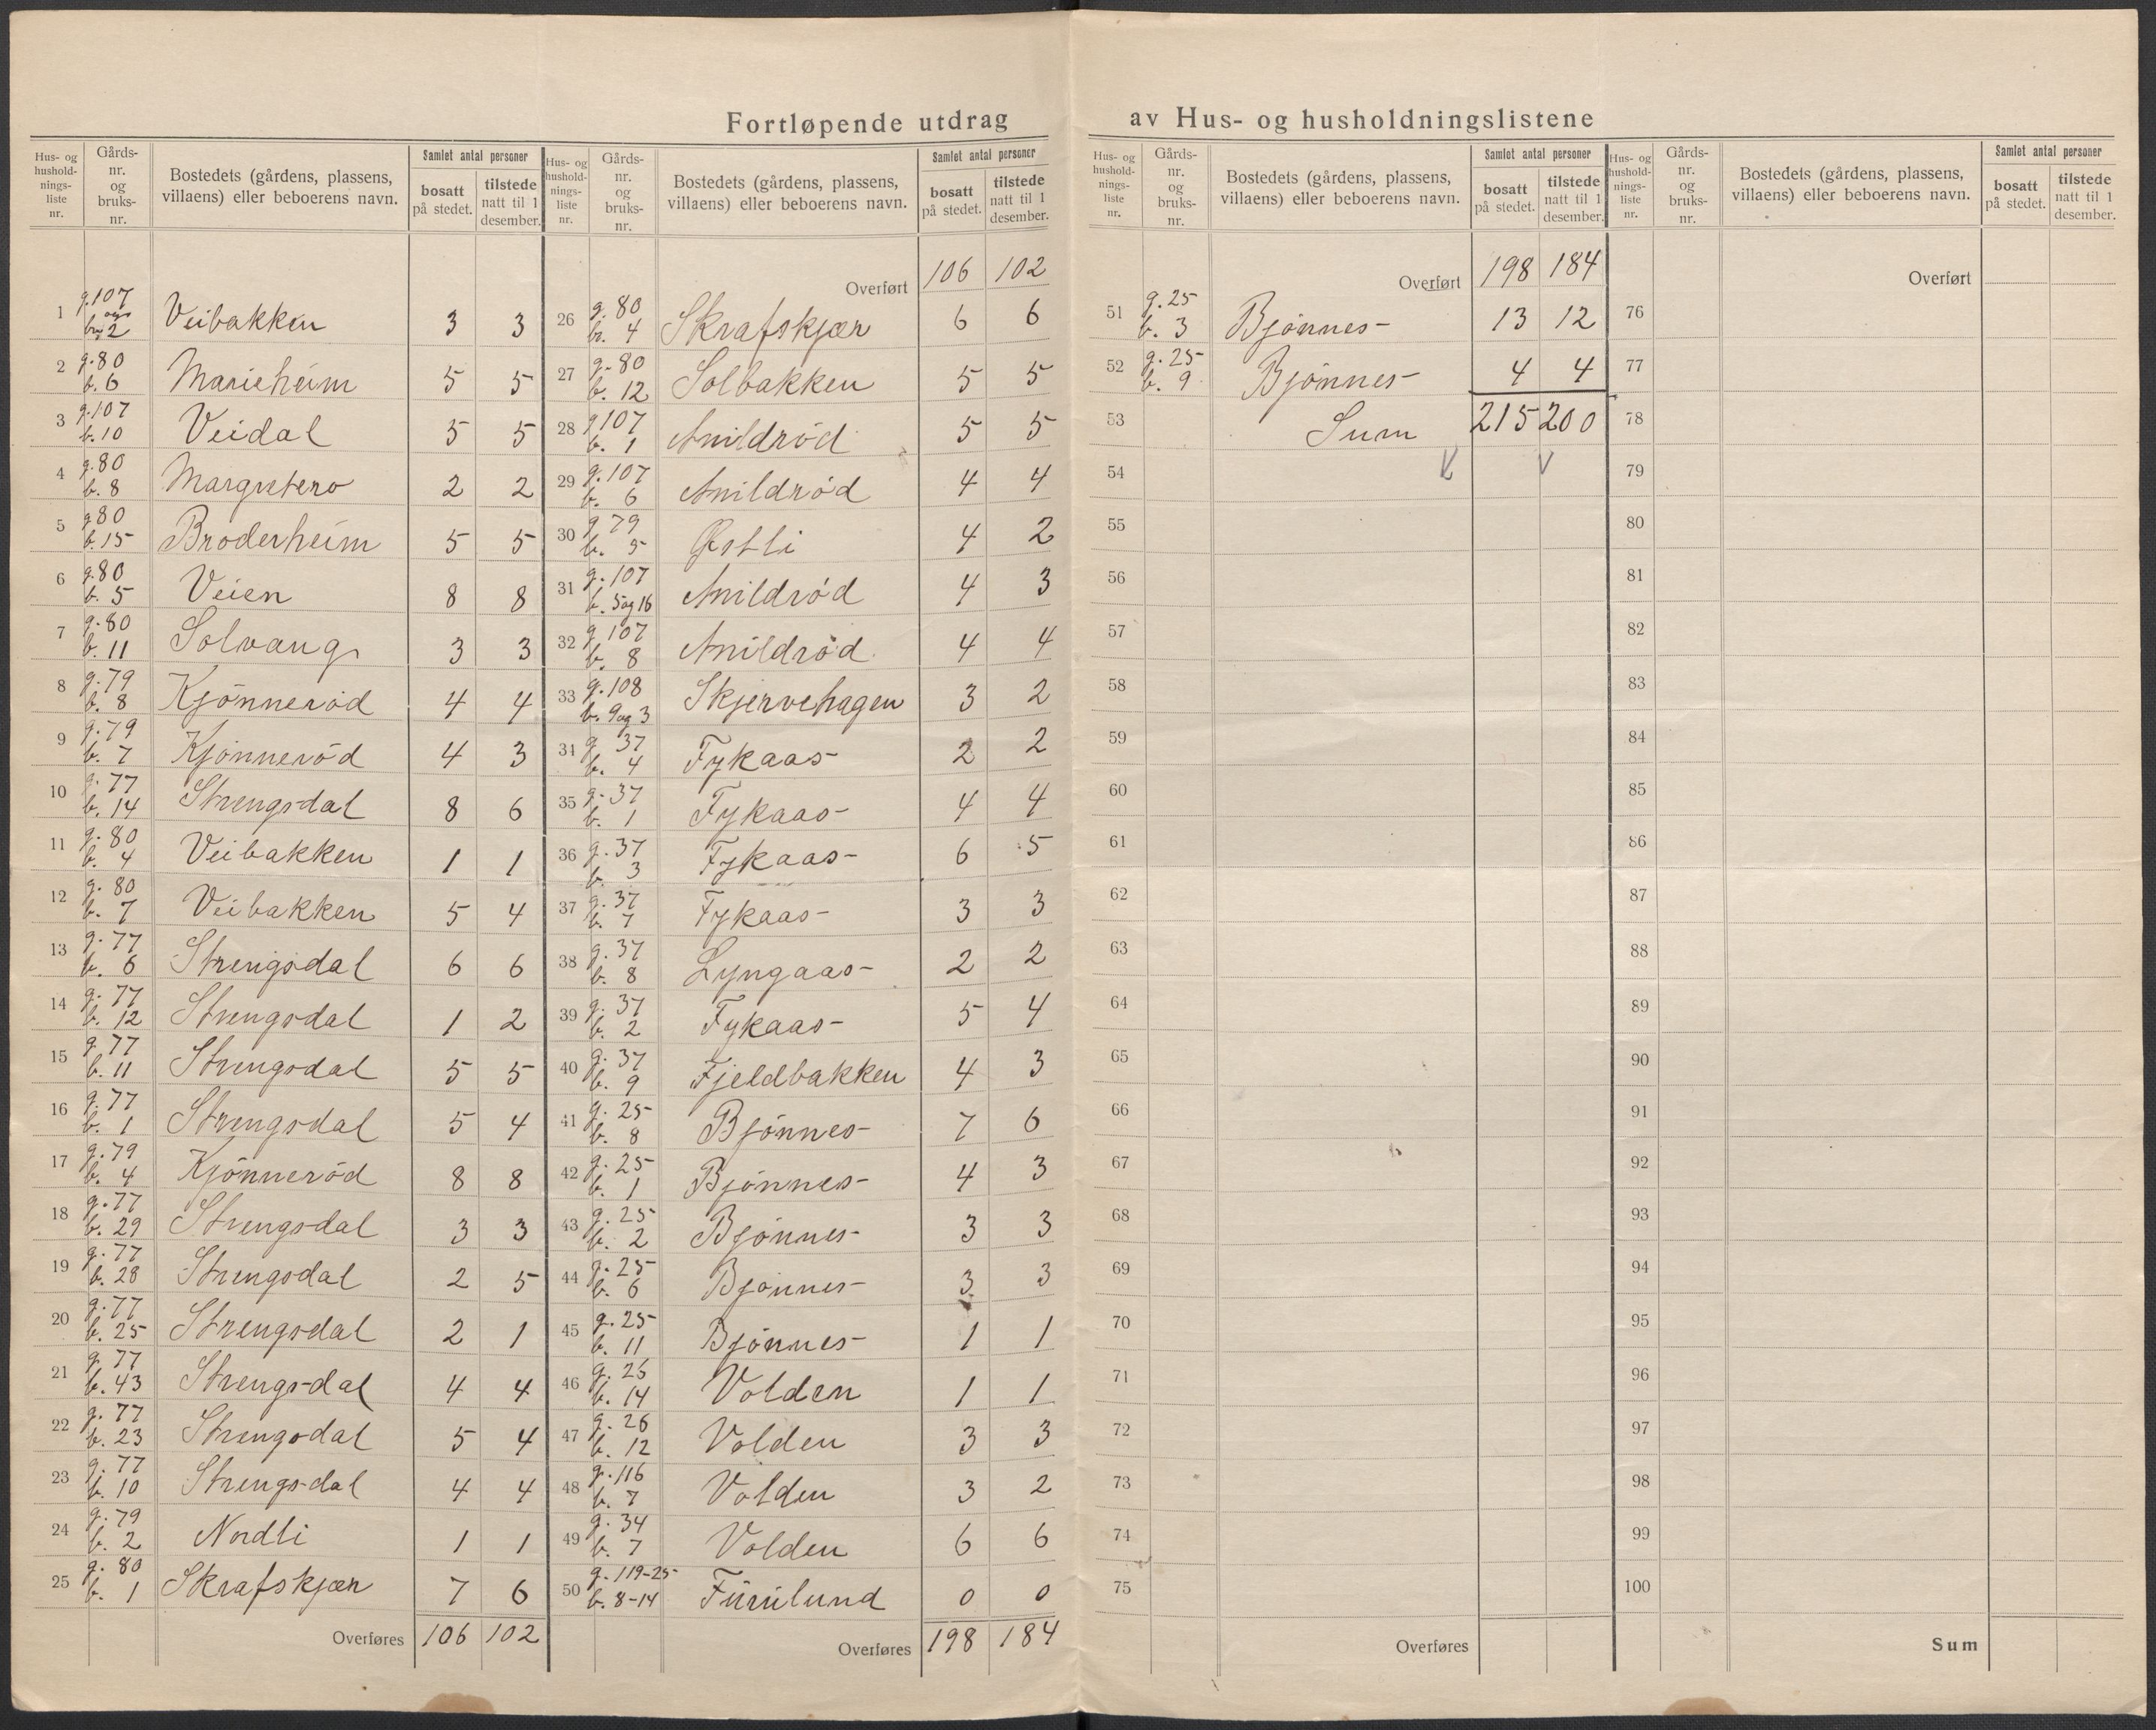 Fortløpende utdrag av Hus- og husholdningslistene
Hus- og hushold-nings-liste nr. Gårds-nr. og bruks-nr. Bostedets (gårdens, plassens, villaens) eller beboerens navn. Samlet antal personer bosatt på stedet. tilstede natt til 1 desember.
1 g.107 b. 2 Veibakken 3 3
2 g.80 b.6 Marieheim 5 5
3 g.107 b.10 Veidal 5 5
4 g.80 b.8 Margretero 2 2
5 g80 b.15 Broderheim 5 5
6 g.80 b.5 Veien 8 8
7 g.80 b.11 Solvang 3 3
8 g.79 b.8 Kjønnerød 4 4
9 g.79 b.7 Kjønnerød 4 3
10 g.77 b.14 Strengsdal 8 6
11 g.80 b.4 Veibakken 1 1
12 g.80 b.7 Veibakken 5 4
13 g.77 b.6 Strengsdal 6 6
14 g.77 b.12 Strengsdal 1 2
15 g.77 b.11 Strengsdal 5 5
16 g.77 b.1 Strengsdal 5 4
17 g.79 b.4 Kjønnerød 8 8
18 g.77 b.29 Strengsdal 3 3
19 g.77 b.28 Strengsdal 2 5
20 g.77 b.25 Strengsdal 2 1
21 g.77 b.43 Strengsdal 4 4
22 g.77 b.23 Strengsdal 5 4
23 g.77 b.10 Strengsdal 4 4
24 g.79 b.2 Nordli 1 1
25 g.80 b.1 Skrafskjær 7 6
Overføres 106 102
Hus- og hushold-nings-liste nr. Gårds-nr. og bruks-nr. Bostedets (gårdens, plassens, villaens) eller beboerens navn. Samlet antal personer bosatt på stedet. tilstede natt til 1 desember.
Overført 106 102
26 g.80 br.4 Skrafskjær 6 6
27 g.80 b.12 Solbakken 5 5
28 g107 b.1 Anildrød 5 5
29 g.107 b.6 Anildrød 4 4
30 g79 b.5 Østli 4 2
31 g.107 b.5og16 Anildrød 4 3
32 g107 b.8 Anildrød 4 4
33 g.108 b.9og3 Skjervehagen 3 2
34 g37 b.4 Fykaas 2 2
35 g.37 b.1 Fykaas 4 4
36 g.37 b.3 Fykaas 6 5
37 g.37 b.7 Fykaas 3 3
38 g.37 b.8 Lyngaas 2 2
39 g.37 b.2 Fykaas 5 4
40 g.37 b.9 Fjeldbakken 4 3
41 g.25 b.8 Bjønnes 7 6
42 g.25 b.1 Bjønnes 4 3
43 g.25 b.2 Bjønnes 3 3
44 g.25 b.6 Bjønnes 3 3
45 g.25 b.11 Bjønnes 1 1
46 b.14 Volden 1 1
47 g.26 b.12 Volden 3 3
48 g.116 b.7 Volden 3 2
49 g.34 b.7 Volden 6 6
50 g.119-25 b.8-14 Furulund 0 0
Overføres 198 184
Hus- og hushold-nings-liste nr. Gårds-nr. og bruks-nr. Bostedets (gårdens, plassens, villaens) eller beboerens navn. Samlet antal personer bosatt på stedet. tilstede natt til 1 desember.
Overført 198 184
51 g.25 b.3 Bjønnes 13 12
52 g.25 b.9 Bjønnes 4 4
53 Sum 215 200
54
55
56
57
58
59
60
61
62
63
64
65
66
67
68
69
70
71
72
73
74
75
Overføres
Hus- og hushold-nings-liste nr. Gårds-nr. og bruks-nr. Bostedets (gårdens, plassens, villaens) eller beboerens navn. Samlet antal personer bosatt på stedet. tilstede natt til 1 desember.
Overført
76
77
78
79
80
81
82
83
84
85
86
87
88
89
90
91
92
93
94
95
96
97
98
99
100
Sum